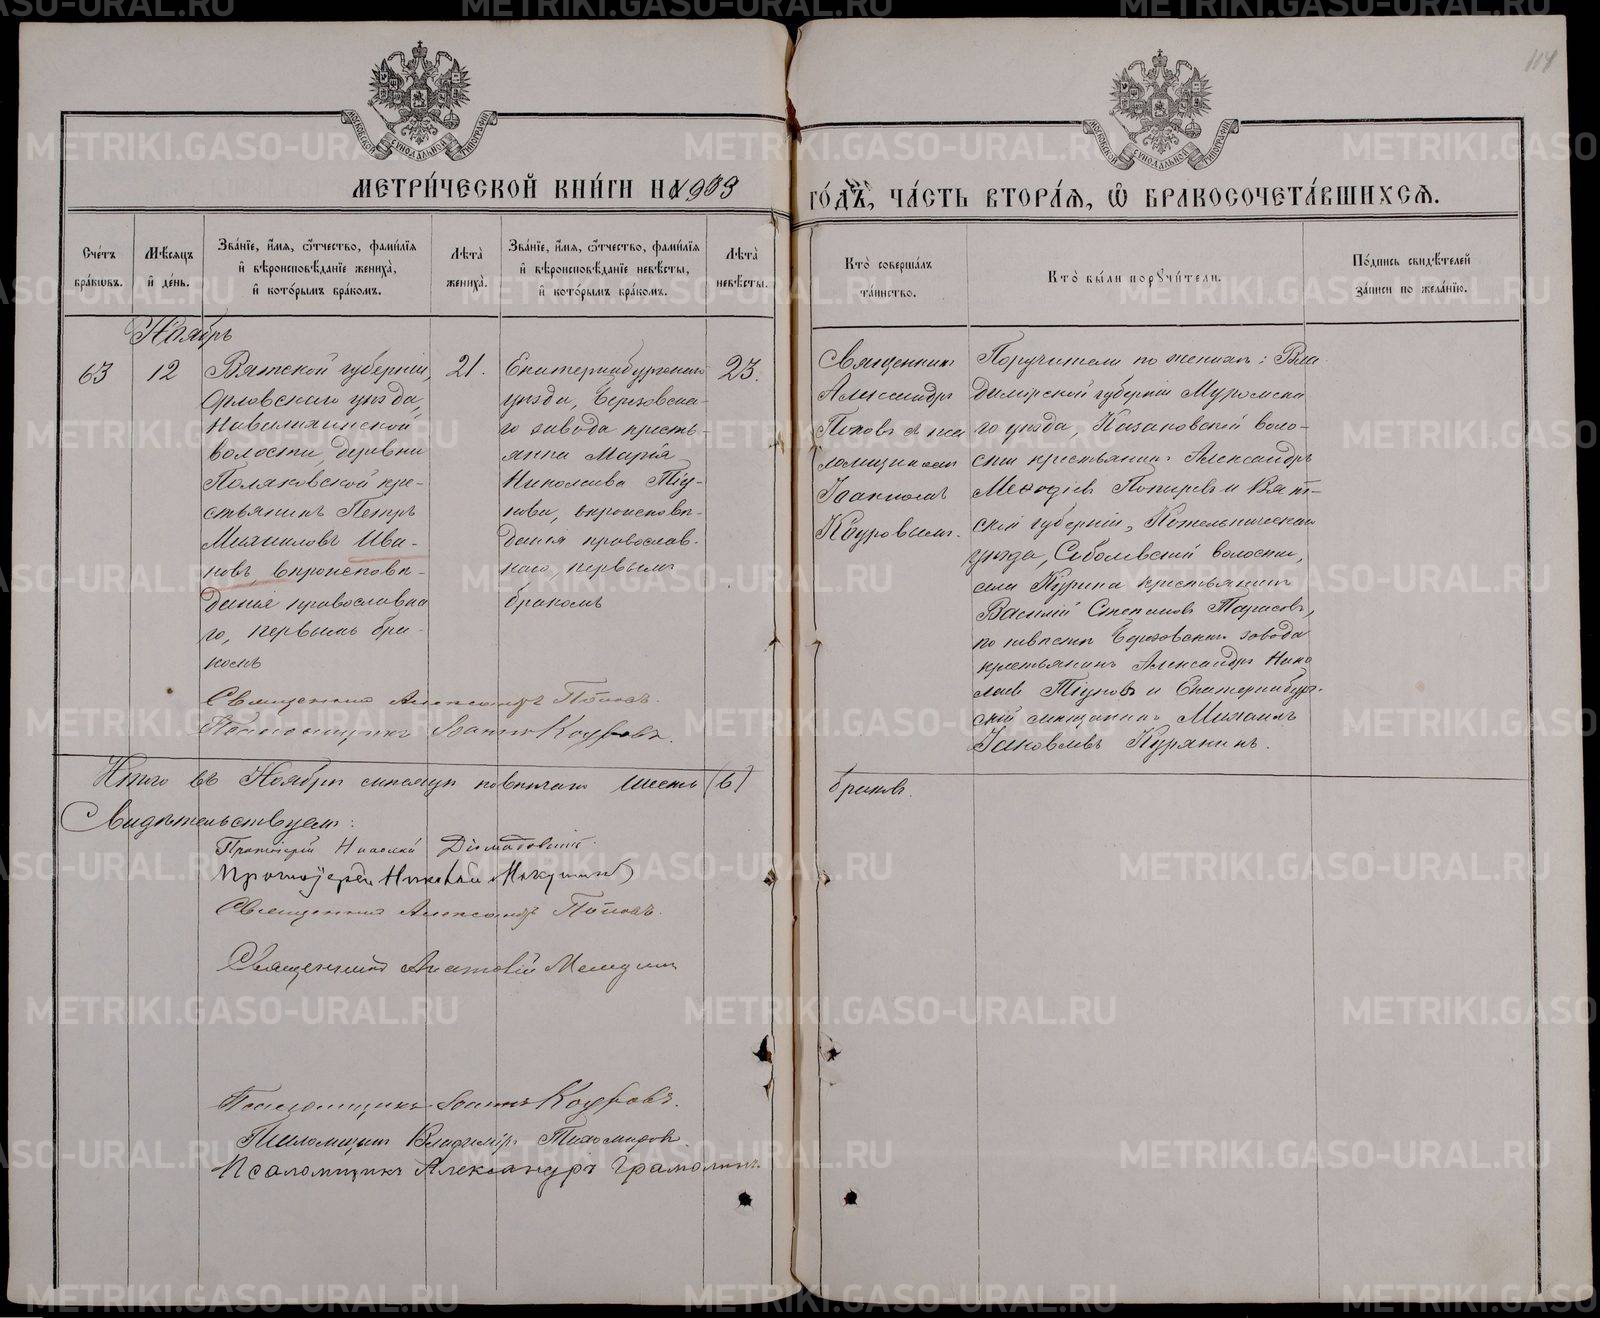 114
МОСКОВСКОЙ СѴНОДАЛЬНОЙ ТИПОГРАФІИ
МОСКОВСКОЙ СѴНОДАЛЬНОЙ ТИПОГРАФІИ
МЕТРИ́ЧЕСКОЙ КНИ́ГИ НА 1909 ГО́ДЪ, ЧА́СТЬ ВТОРА́Я, Ѡ БРАКОСОЧЕТА́ВШИХСЯ.
Сче́тъ бра́ковъ.
Мѣ́сяцъ и́ де́нь.
Зва́нїе, и́мя, ѻ҆́тчество, фами́лїя и҆ вѣроисповѣ́данїе жениха̀, и҆ кото́рымъ бра́комъ.
Лѣ́та жениха̀.
Зва́нїе, и́мя, ѻ҆́тчество, фами́лїя и҆ вѣроисповѣ́данїе невѣ́сты, и҆ кото́рымъ бра́комъ.
Лѣ́та невѣ́сты.
Кто̀ соверша́лъ та́инство.
Кто̀ бы́ли порꙋчи́тели.
По́дпись свидѣ́телей за́писи по жела́нїю.
Ноябрь
63
12
Вятской губерніи,
Орловскаго уѣзда,
волости, деревни
Поляковской кре-
стьянинъ Петръ
Михаиловъ Ива-
новъ, вѣроисповѣ-
данія православна
го, первымъ бра-
комъ
21.
Екатеринбургскаго
уѣзда, Березовска-
го завода кресть-
янка Марія
Николаева Тіу-
нова, вѣроисповѣ-
данія православ-
наго, первымъ
бракомъ
23.
Священникъ
Александръ
Поповъ съ пса
ломщикомъ
Іоанномъ
Кауровымъ.
Поручители по женихѣ: Вла
димірской губерніи Муромска
го уѣзда, Казаковской воло-
сти крестьянинъ Александръ
Меѳодіевъ и Вят-
ской губерніи, Котельническаго
уѣзда, Соболевской волости,
села Курина крестьянинъ
Василій Степановъ Тарасовъ,
по невѣстѣ Березовскаго завода
крестьянинъ Александръ Нико
лаевъ Тіуновъ и Екатеринбург-
скій мѣщанинъ Михаилъ
Яковлевъ Курякинъ.
Священникъ Александръ Поповъ.
Псаломщикъ Іоаннъ Кауровъ.
Итого въ Ноябрѣ мѣсяцѣ повѣнчано шесть (6) браковъ.
Свидѣтельствуемъ:
Протоіерей Николай
Протоіерей Николай
Священникъ Александръ Поповъ.
Священникъ Анатолій
Псаломщикъ Іоаннъ Кауровъ.
Псаломщикъ Владиміръ Тихомировъ.
Псаломщикъ Александръ Грамолинъ.
METRIKI.GASO-URAL.RU